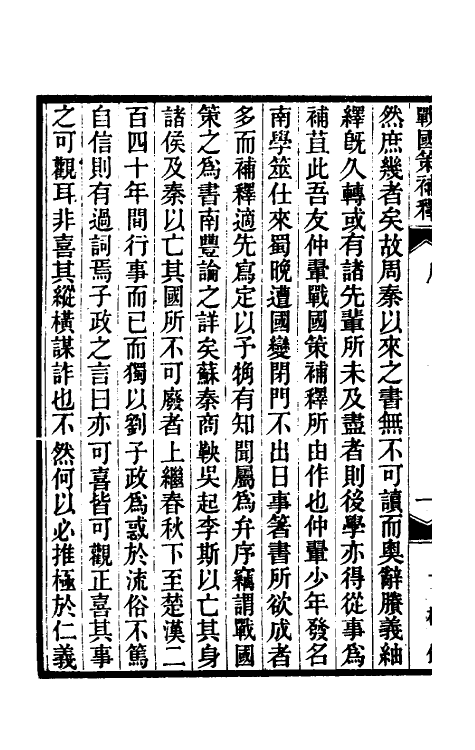 戰國策補釋
然庶幾者矣故周秦以來之書無不可讀而奧辭賸義紬
繹旣久轉或有諸先輩所未及盡者則後學亦得從事爲
補苴此吾友仲翬戰國策補釋所由作也仲翬少年發名
南學筮仕來蜀晚遭國變閉門不出日事箸書所欲成者
多而補釋適先寫定以予觕有知聞屬爲弁序竊謂戰國
策之爲書南豐論之詳矣蘇秦商鞅吳起李斯以亡其身
諸侯及秦以亡其國所不可廢者上繼春秋下至楚漢二
百四十年間行事而已而獨以劉子政爲惑於流俗不篤
自信則有過詞焉子政之言曰亦可喜皆可觀正喜其事
之可觀耳非喜其縱橫謀詐也不然何以必推極於仁義